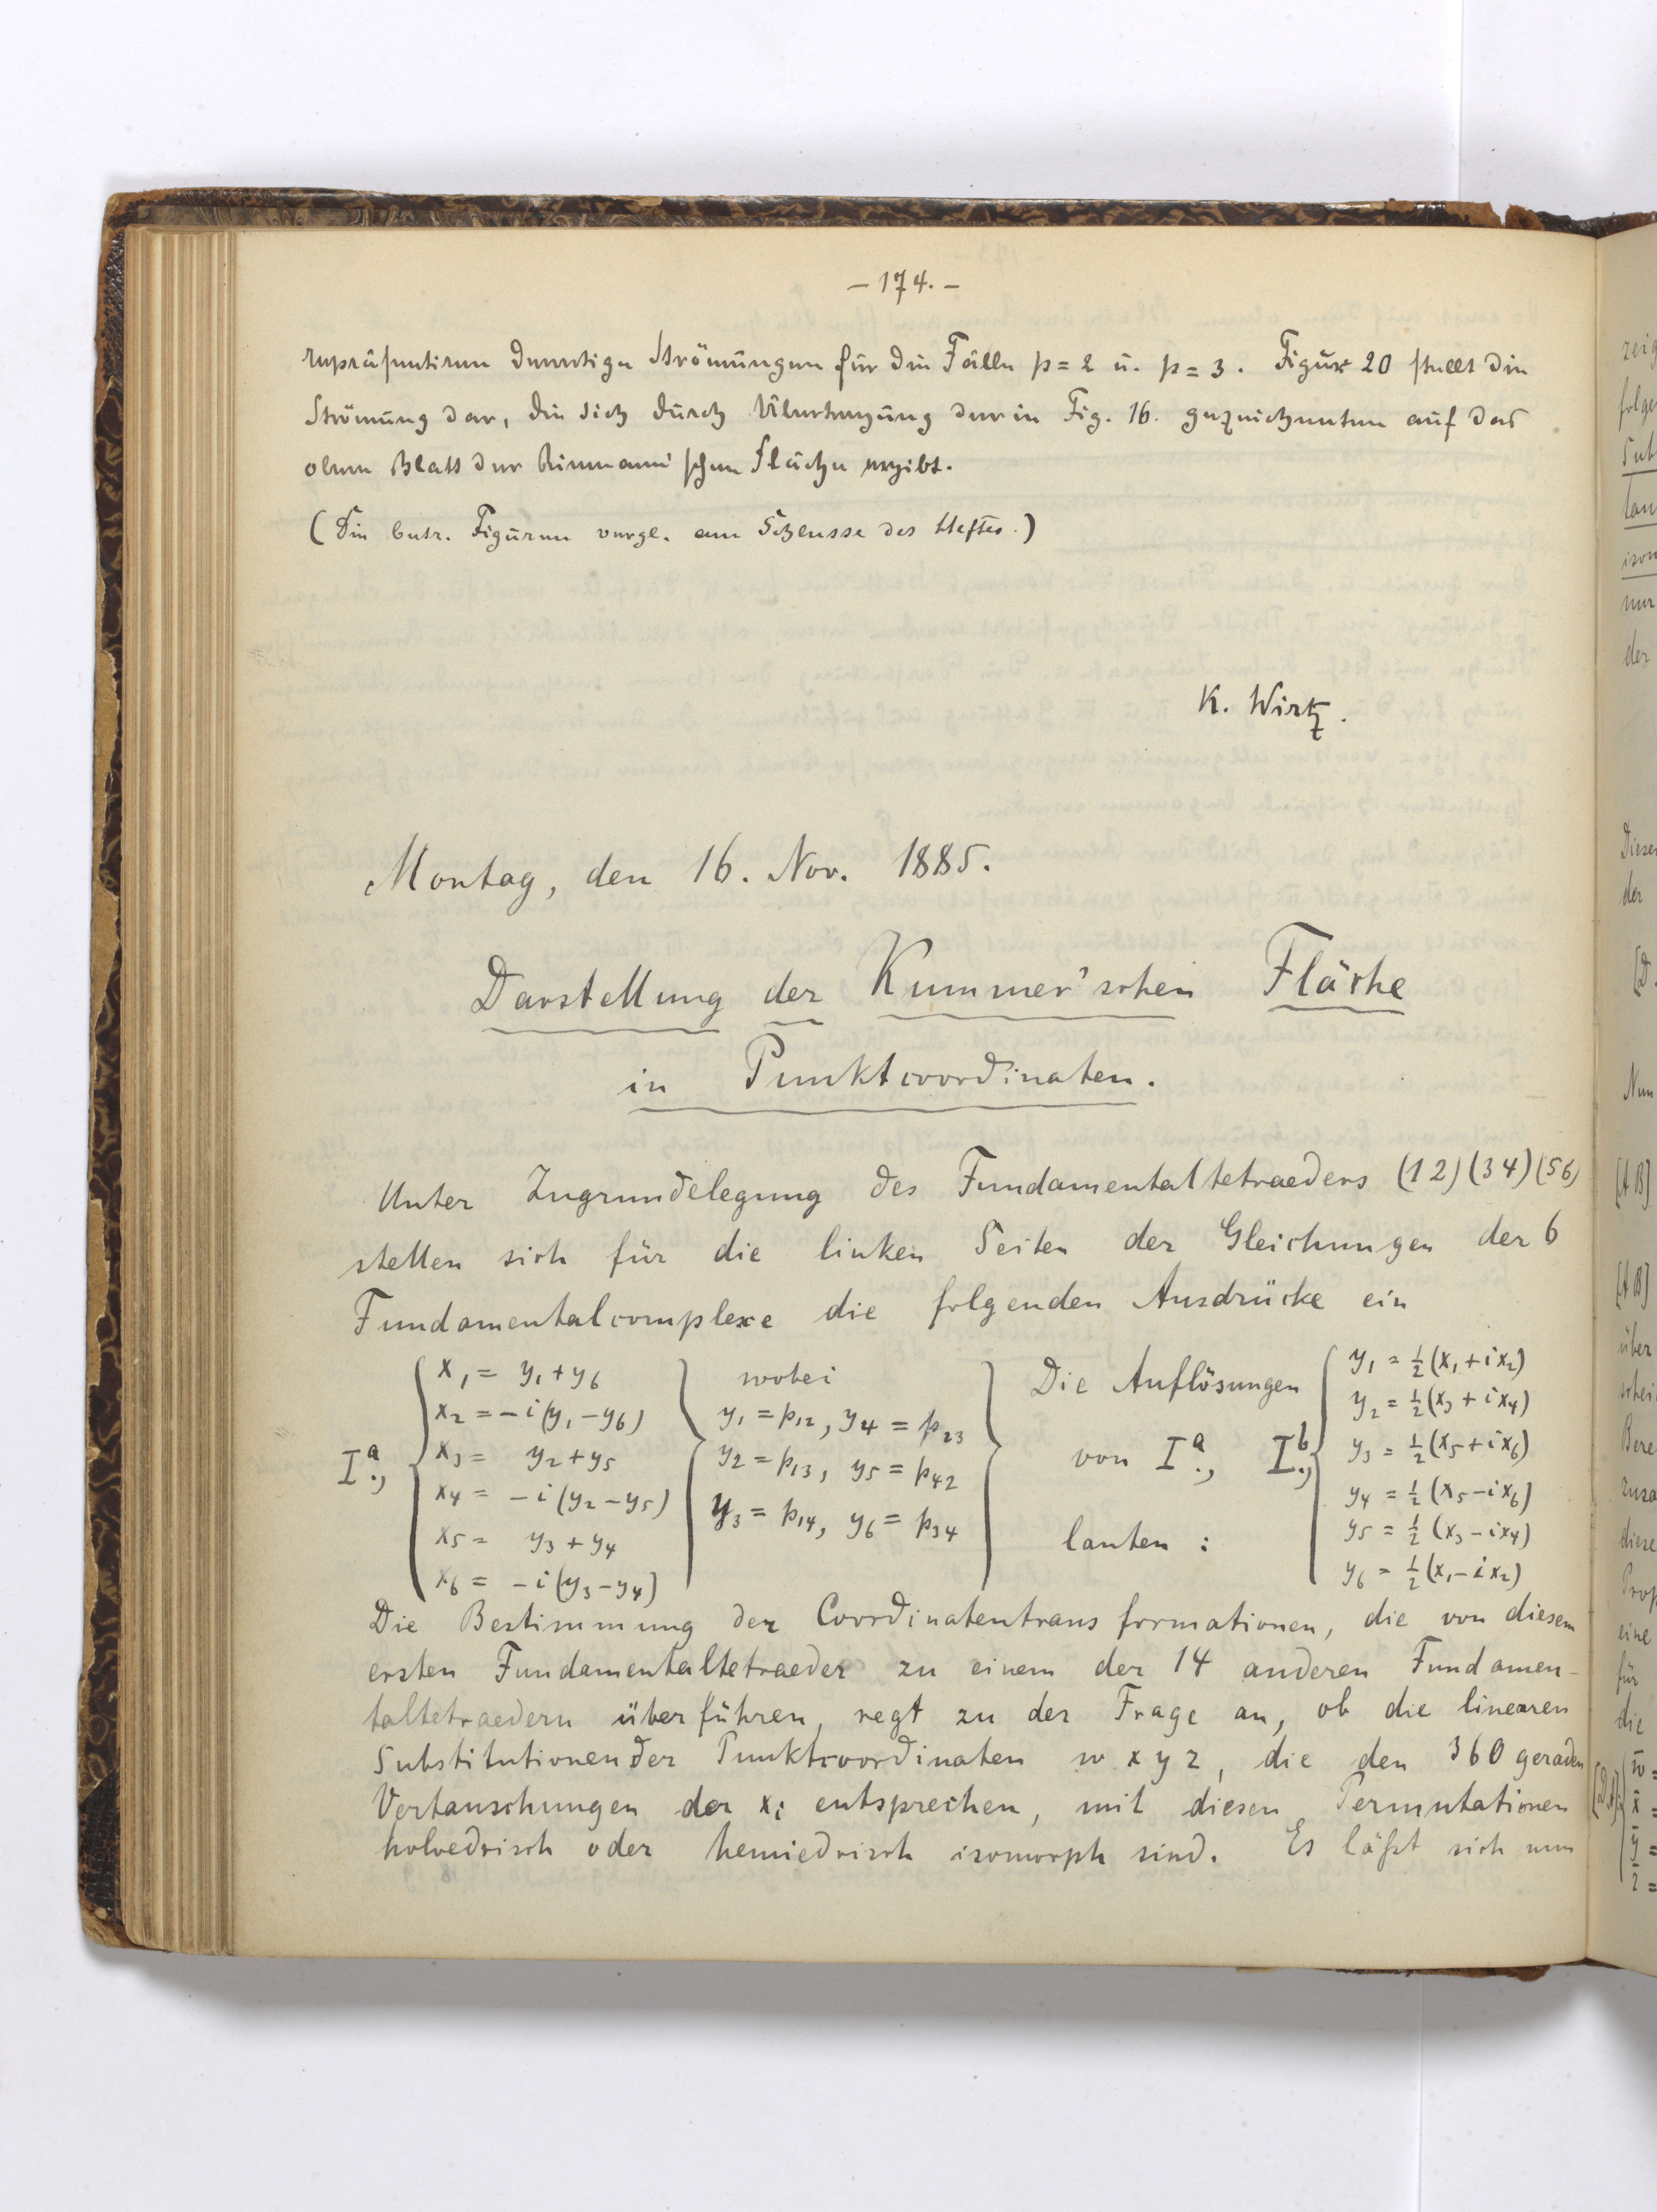 – 174. –
repräsentiren derartige Strömungen für die Fälle p = 2 u. p = 3. Figur 20 stellt die
Strömung dar, die sich durch Übertragung der in Fig. 16. gezeichneten auf das
obere Blatt der Riemann'schen Fläche ergibt.
(Die betr. Figuren vergl. am Schlusse des Heftes.)
K. Wirtz.
Montag, den 16. Nov. 1885.
Darstellung der Kummer'schen Fläche
in Punktcoordinaten.
Unter Zugrundelegung des Fundamentaltetraeders (12)(34)(56)
stellen sich für die linken Seiten der Gleichungen der 6
Fundamentalcomplexe die folgenden Ausdrücke ein
I.ᵃ,
x₁ = y₁ + y₆
x₂ = – i(y₁ – y₆)
x₃ = y₂ + y₅
x₄ = – i(y₂ – y₅)
x₅ = y₃ + y₄
x₆ = – i(y₃ – y₄)
wobei
y₁ = p₁₂, y₄ = p₂₃
y₂ = p₁₃, y₅ = p₄₂
y₃ = p₁₄, y₆ = p₃₄
Die Auflösungen
von I.ᵃ, I.ᵇ,
lauten :
y₁ = ½(x₁ + ix₂)
y₂ = ½(x₃ + ix₄)
y₃ = ½(x₅ + ix₆)
y₄ = ½(x₅ – ix₆)
y₅ = ½(x₃ – ix₄)
y₆ = ½(x₁ – ix₂)
Die Bestimmung der Coordinatentransformationen, die von diesem
ersten Fundamentaltetraeder zu einem der 14 anderen Fundamen-
taltetraedern überführen, regt zu der Frage an, ob die linearen
Substitutionen der Punktcoordinaten w x y z, die den 360 geraden
Vertauschungen der xᵢ entsprechen, mit diesen Permutationen
holoedrisch oder hemiedrisch isomorph sind. Es läßt sich nun